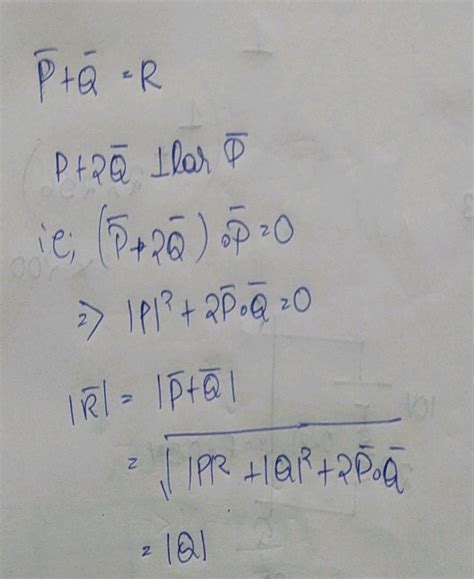 P̄+Q̄ = R
P+2Q̄ ⊥lar P̄
ie; (P̄+2Q̄)∘P̄=0
=> |P|²+2P̄∘Q̄=0
|R̄| = |P̄+Q̄|
= √|P|²+|Q|²+2P̄∘Q̄
= |Q|